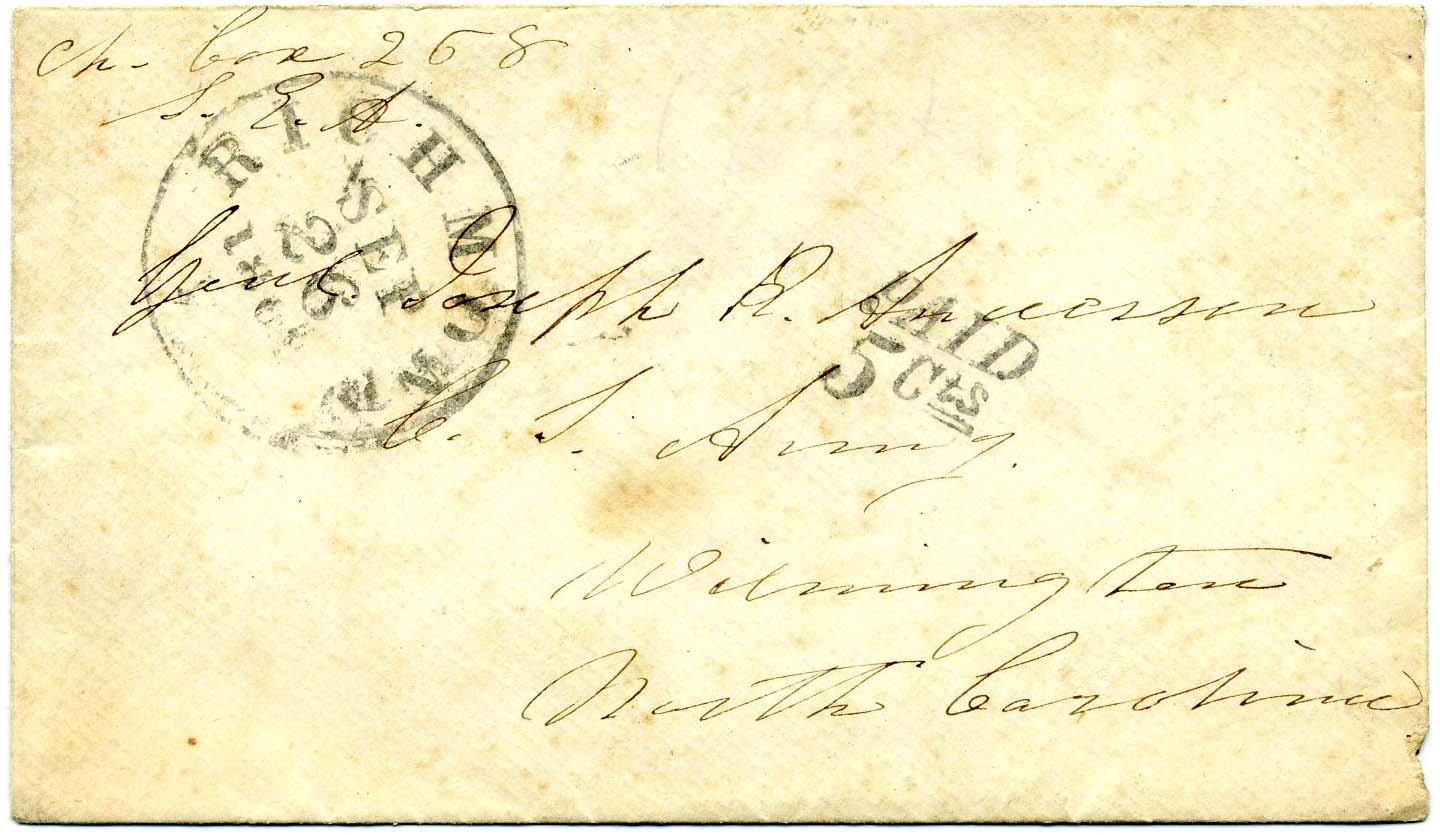 Ch. Box 258
S. E. A.
RICHMOND
SEP
26
1861
VA.
Genl. Joseph R. Anderson
PAID
5 Cts
C. S. Army.
Wilmington
North Carolina